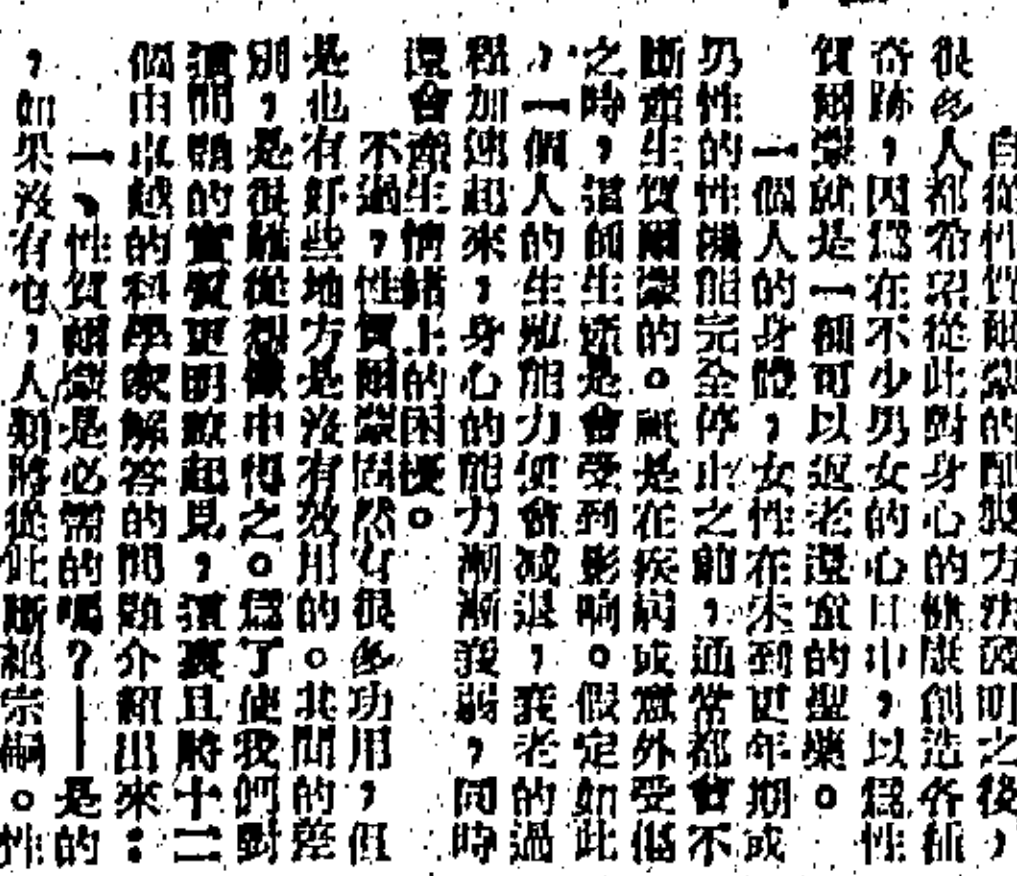 自從性賀爾蒙的配製方法發明之後，
很多人都希望從此對身心的健康創造各種
奇跡，因爲在不少男女的心目中，以爲性
賀爾蒙就是一種可以返老還童的聖藥。
一個人的身體，女性在未到更年期或
男性的性機能完全停止之前，通常都會不
斷產生賀爾蒙的。祇是在疾病或意外受傷
之時，這個生產是會受到影响。假定如此
，一個人的生殖能力便會减退，衰老的過
程加速起來，身心的能力漸漸衰弱，同時
還會產生情緒上的困擾。
不過，性賀爾蒙固然有很多功用，但
是也有好些地方是沒有效用的。其間的差
別，是很難從想像中得之。爲了使我們對
這問題的實質更明瞭起見，這裏且將十二
個由卓越的科學家解答的問題介紹出來：
一、性賀爾蒙是必需的嗎？—是的
，如果沒有它，人類將從此斷絕宗嗣。性